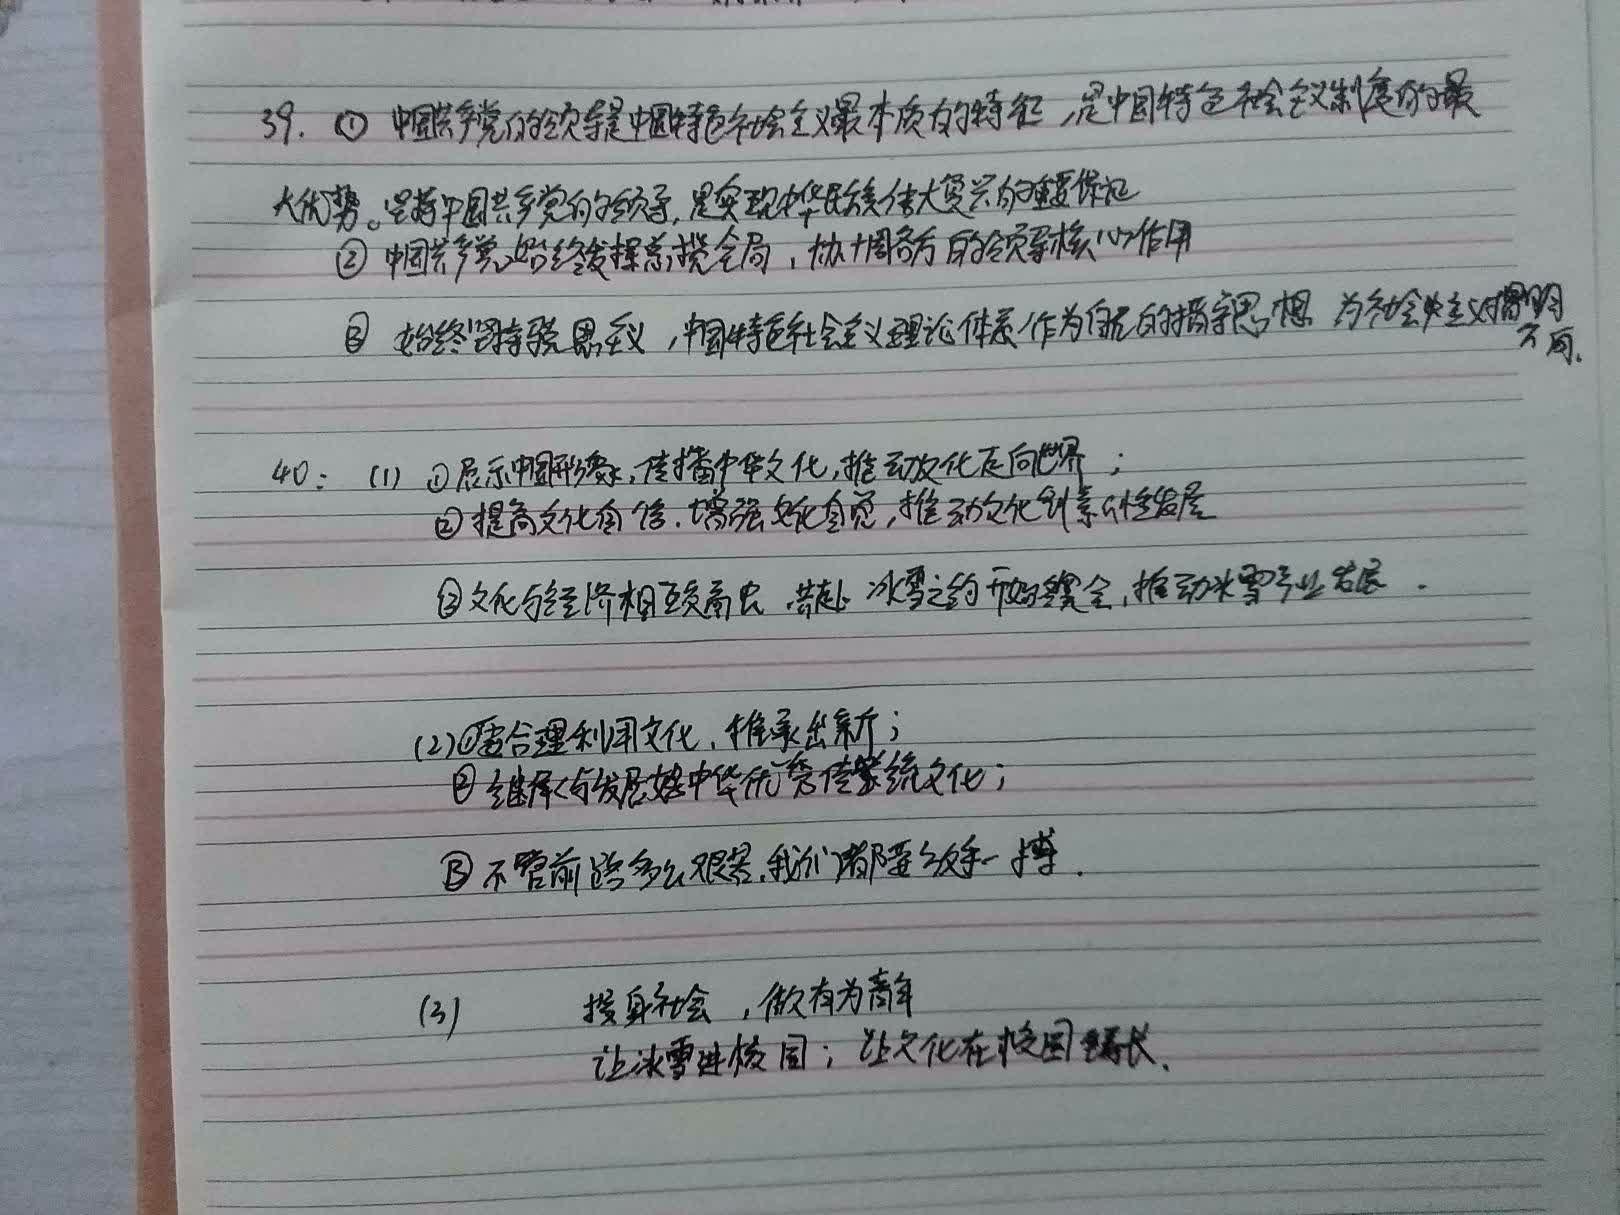 39. ① 中国共产党的领导是中国特色社会主义最本质的特征，是中国特色社会主义制度的最
大优势。坚持中国共产党的领导，是实现中华民族伟大复兴的重要保证
② 中国共产党始终发挥总揽全局，协调各方的领导核心作用
③ 始终坚持 中国特色社会主义理论体系作为自己的指导思想 为社会主义指明
方向.
40: (1) ①展示中国形象，传播中华文化，推动文化走向世界；
②提高文化自信，增强文化自觉，推动文化创新性发展
③文化与经济相互交融 共赴 冰雪之约 推动冰雪产业发展.
(2)①合理利用文化，推陈出新；
②继承与发展好中华优秀传统文化；
③不管前路多么艰苦，我们都要放手一搏.
(3) 投身社会，做有为青年
让冰雪进校园；让文化在校园 .